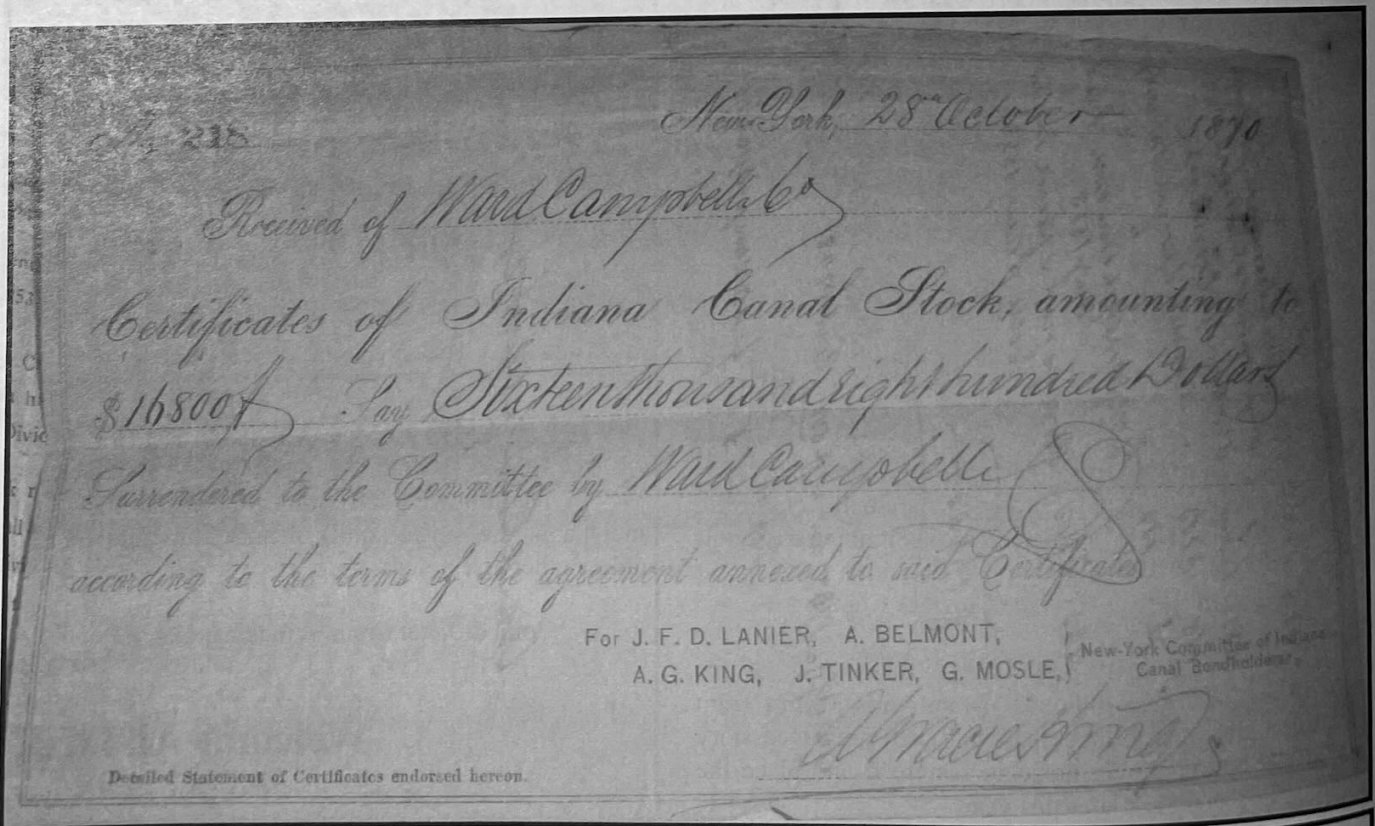 No. 218
New-York, 28th October 1870
Received of Ward Campbell & Co
Certificates of Indiana Canal Stock, amounting to
$16800 Say Sixteen thousand eight hundred Dollars
Surrendered to the Committee by Ward Campbell & Co
according to the terms of the agreement annexed to said Certificates
For J. F. D. LANIER, A. BELMONT,
A. G. KING, J. TINKER, G. MOSLE,
New-York Committee of Indiana
Canal Bondholders,
A Gracie King
Detailed Statement of Certificates endorsed hereon.